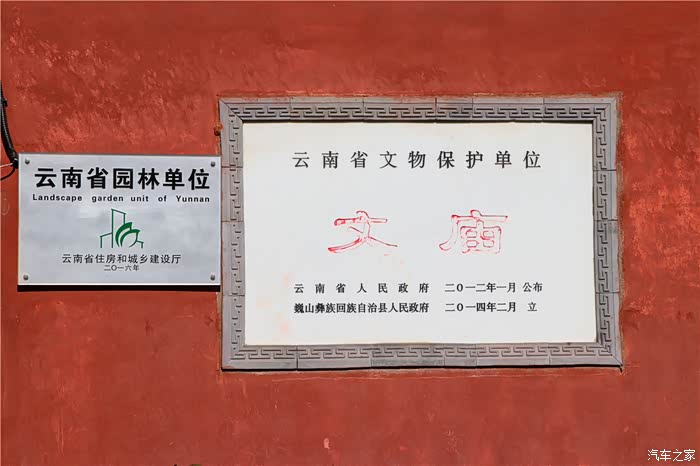 云南省园林单位
Landscape garden unit of Yunnan
云南省住房和城乡建设厅
二〇一六年
云南省文物保护单位
文庙
云南省人民政府 二〇一二年一月 公布
巍山彝族回族自治县人民政府 二〇一四年二月 立
汽车之家